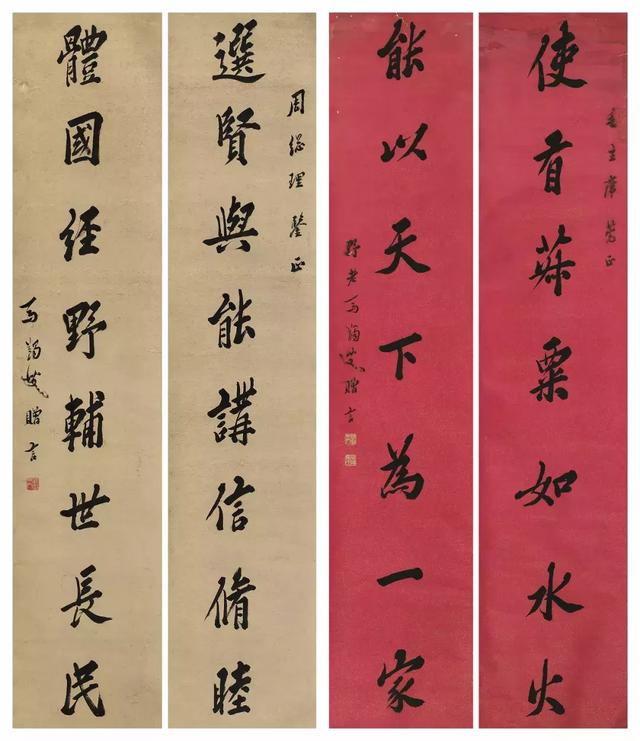 使有菽粟如水火
毛主席 正
能以天下為一家
野老馬蠲叟贈言
選賢與能講信脩睦
周總理 鑒正
體國經野輔世長民
馬蠲叟贈言